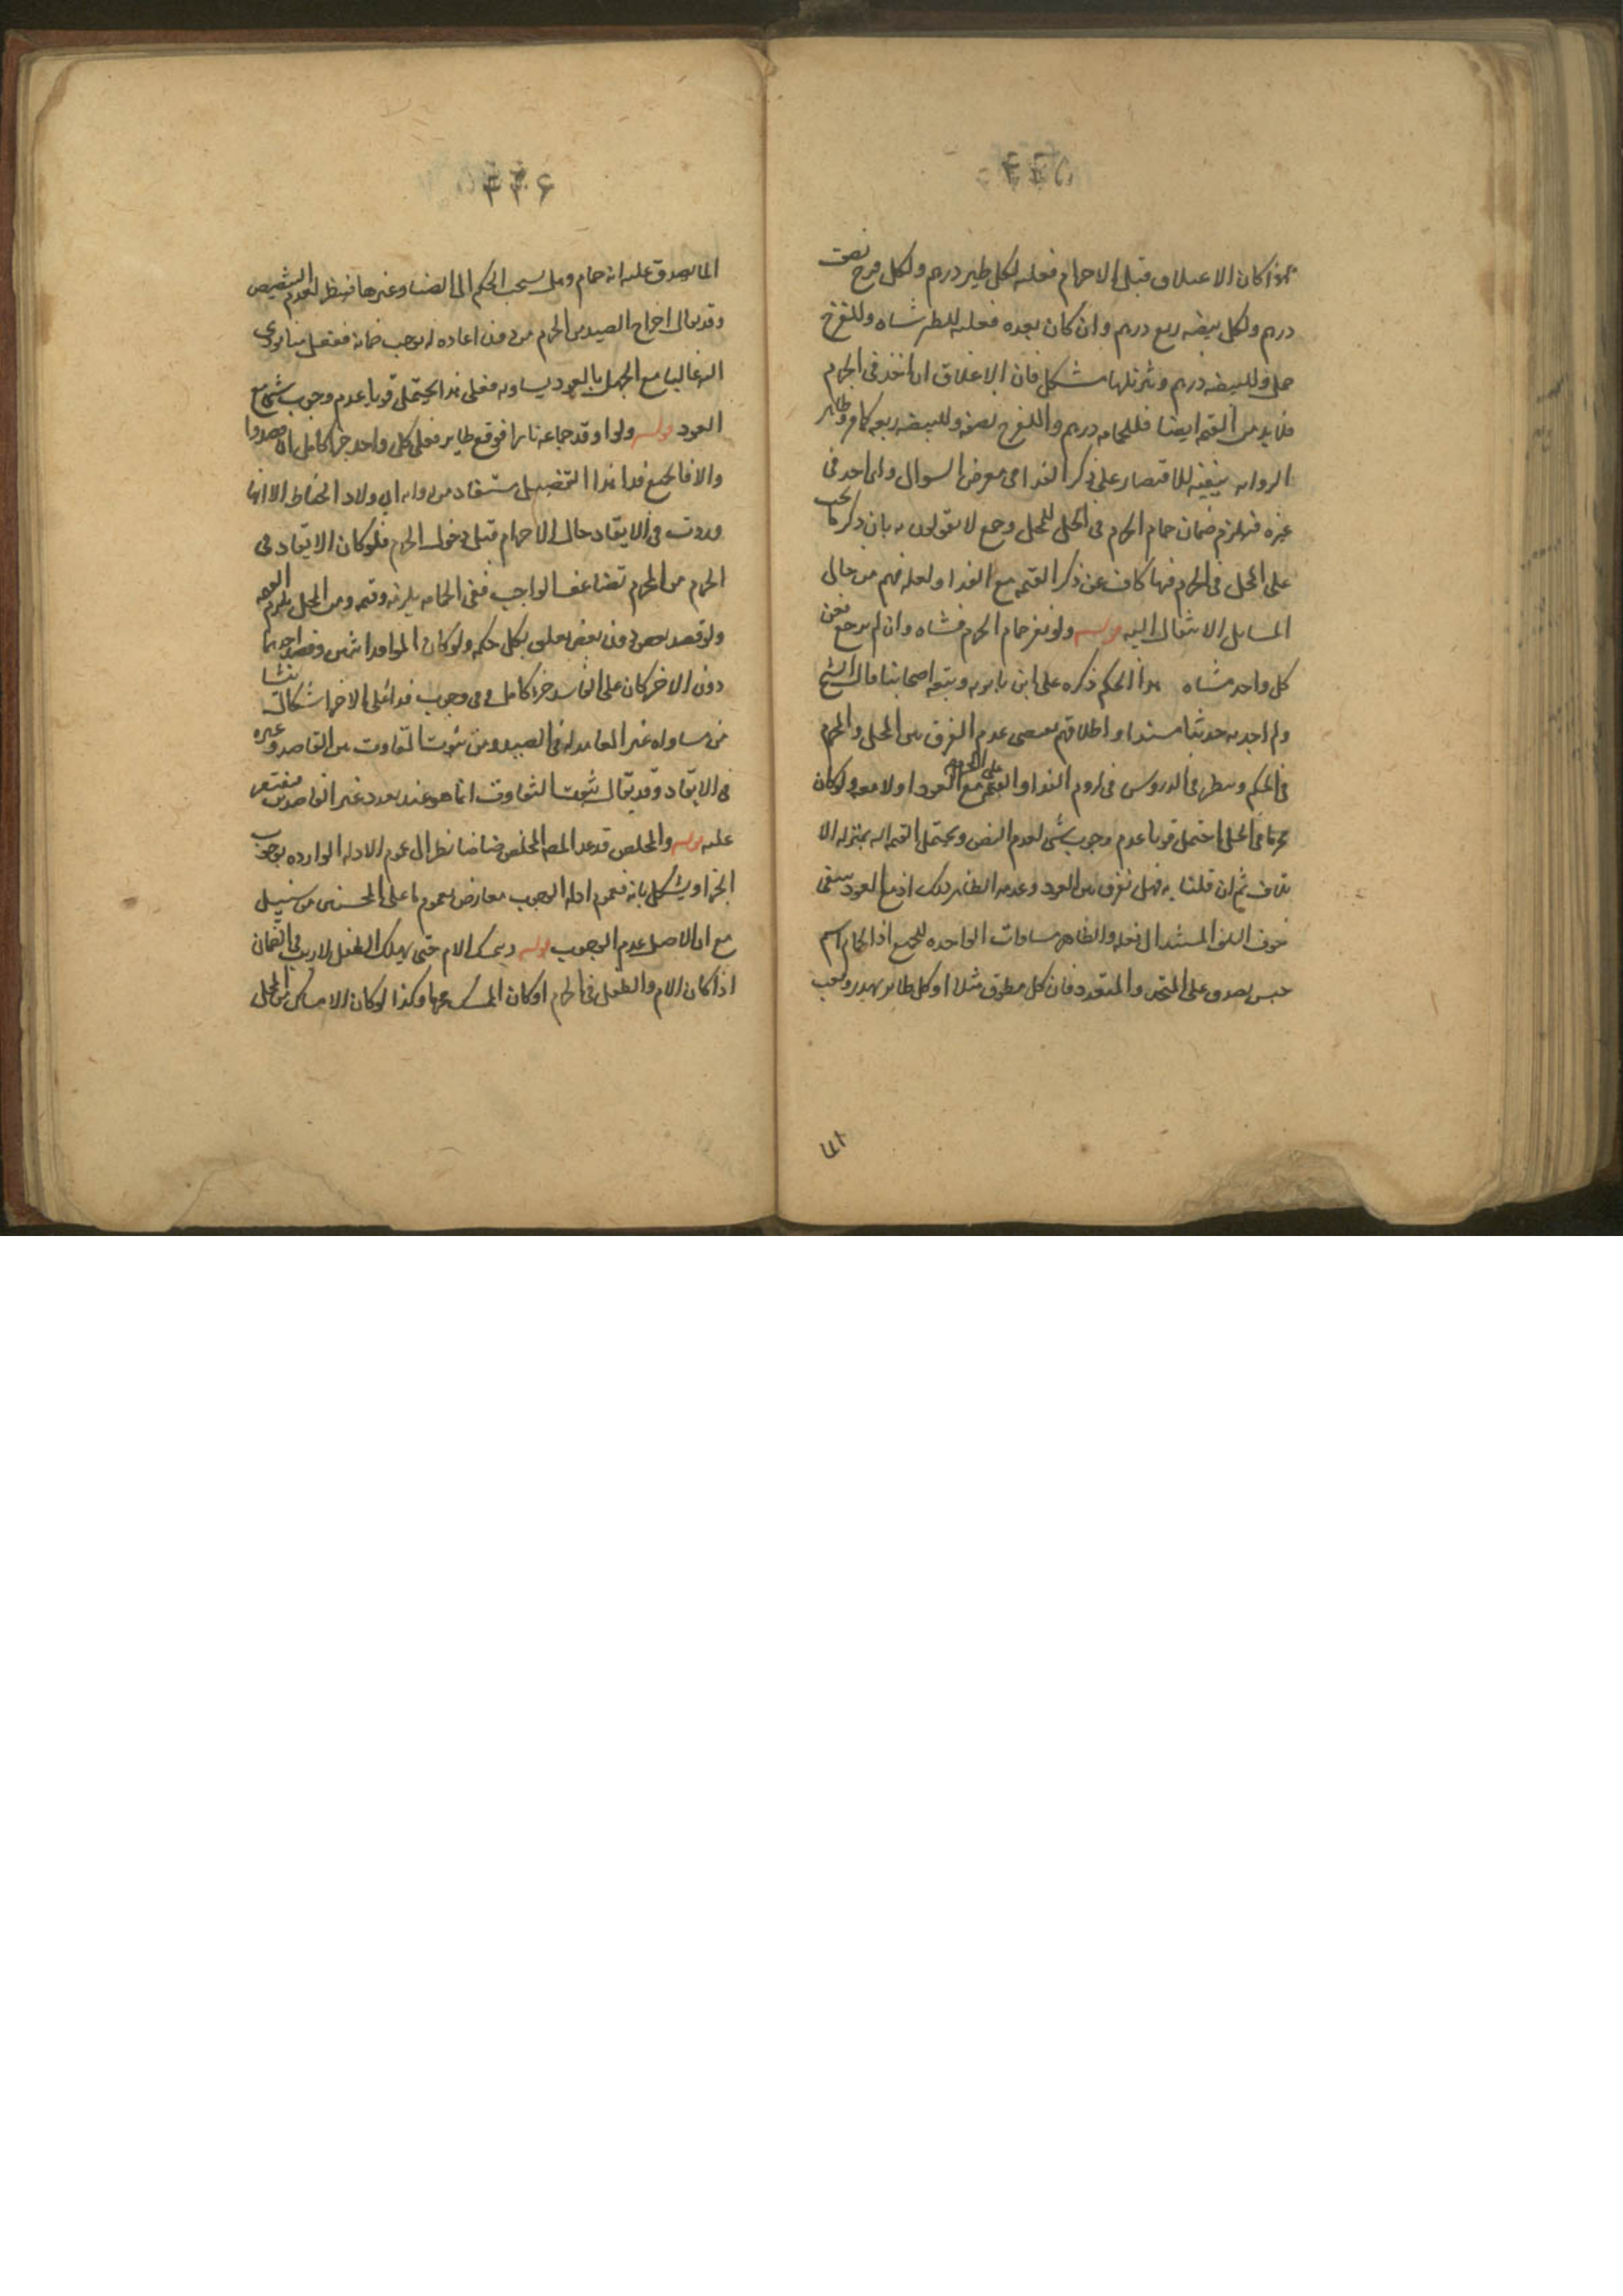 ۴۴۵
اذا كان الاغلاق قبل الاحرام فعليه لكل طير درهم ولكل فرخ نصف
درهم ولكل بيضه ربع درهم وان كان بعده فعليه للطير شاه وللفرخ
حمل وللبيضه درهم وتنزيلها مشكل فان الاغلاق ان اخذ في الحرام
فلابد من القيمه ايضا فللحمامه درهم وللفرخ نصفه وللبيضه ربعه كما مر وظاهر
الروايه ينفيه للاقتصار على ذكر الفدا في معرض السوال ولم احد في
غيره فيلزم ضمان حمام الحرم في الحل للمحل وجمع لا يقولون به بان ذكر ما يجب
على المحل في الحرم فيها كاف عن ذكر القيمه مع الفدا ولعله فهم من حال
المسايل الانتقال اليه قوله ولو نفر حمام الحرم فشاه وان لم يرجع فعن
كل واحد شاه هذا الحكم ذكره على ابن بابويه وتبعه اصحابنا قال الشيخ
ولم اجد به حديثا مسندا واطلاقهم يقتضي عدم الفرق بين المحل والمحرم
في الحكم ونظر في الدروس في لزوم الفدا والقيمه على المحرم مع العود اولا معه ولو كان
محرما في الحل احتمل قويا عدم وجوب شي لعدم النص ويحتمل القيمه لانه بمنزله الا
تلاف ثم ان قلنا به فهل نفرق بين العود وعدمه الظاهر ذلك اذ مع العود ينتفي
خوف التلف المستند الى فعله والظاهر مساوات الواحده للجمع اذ الحمام اسم
جنس يصدق على المتحد والمتعدد فان كل مطوق مثلا او كل طاير يهدر ويعب
الما
۴۴۶
الما يصدق عليه انه حمام وهل ينسحب الحكم الى الضبا وغيرها فيه نظر لعدم التنصيص
وقد يقال اخراج الصيد من الحرم من دون اعاده له يوجب ضمانه ففعل ما يودي
اليه غاليا مع الجهل بالعود يساويه فعلى هذا يحتمل قويا عدم وجوب شي مع
العود قوله ولو اوقد جماعه نارا فوقع طاير فعلى كل واحد جزا كامل ان قصدوا
والا فالجميع فدا هذا التفصيل مستفاد من روايه ابي ولاد الحناط الا انها
وردت في الايقاد حال الاحرام قبل دخول الحرم فلو كان الايقاد في
الحرم من المحرم تضاعف الواجب ففي الحمامه يلزمه وقيمه ومن المحل يلزم القيمه
ولو قصد بعض دون بعض تعلق بكل حكمه ولو كان الموقد اثنين وقصد احدهما
دون الاخر كان على القاصد جزا كامل وفي وجوب فدا على الاخر اشكال ينشا
من مساواه غير القاصد له في الصيد ومن ثبوت التفاوت بين القاصد وغيره
في الايقاد وقد يقال ثبوت التفاوت انما هو عند تعدد غير القاصدين فيقتصر
عليه قوله والمخلص قد عد المص المخلص ضامنا نظرا الى عموم الادله الوارده بوجوب
الجزا ويشكل بانه فعموم ادله الوجوب معارض بعموم ما على المحسنين من سبيل
مع ان الاصل عدم الوجوب قوله ويمسك الام حتى يهلك الطفل لا ريب في الضمان
اذا كان الام والطفل في الحرم او كان الممسك محرما وكذا لو كان الامساك من المحل